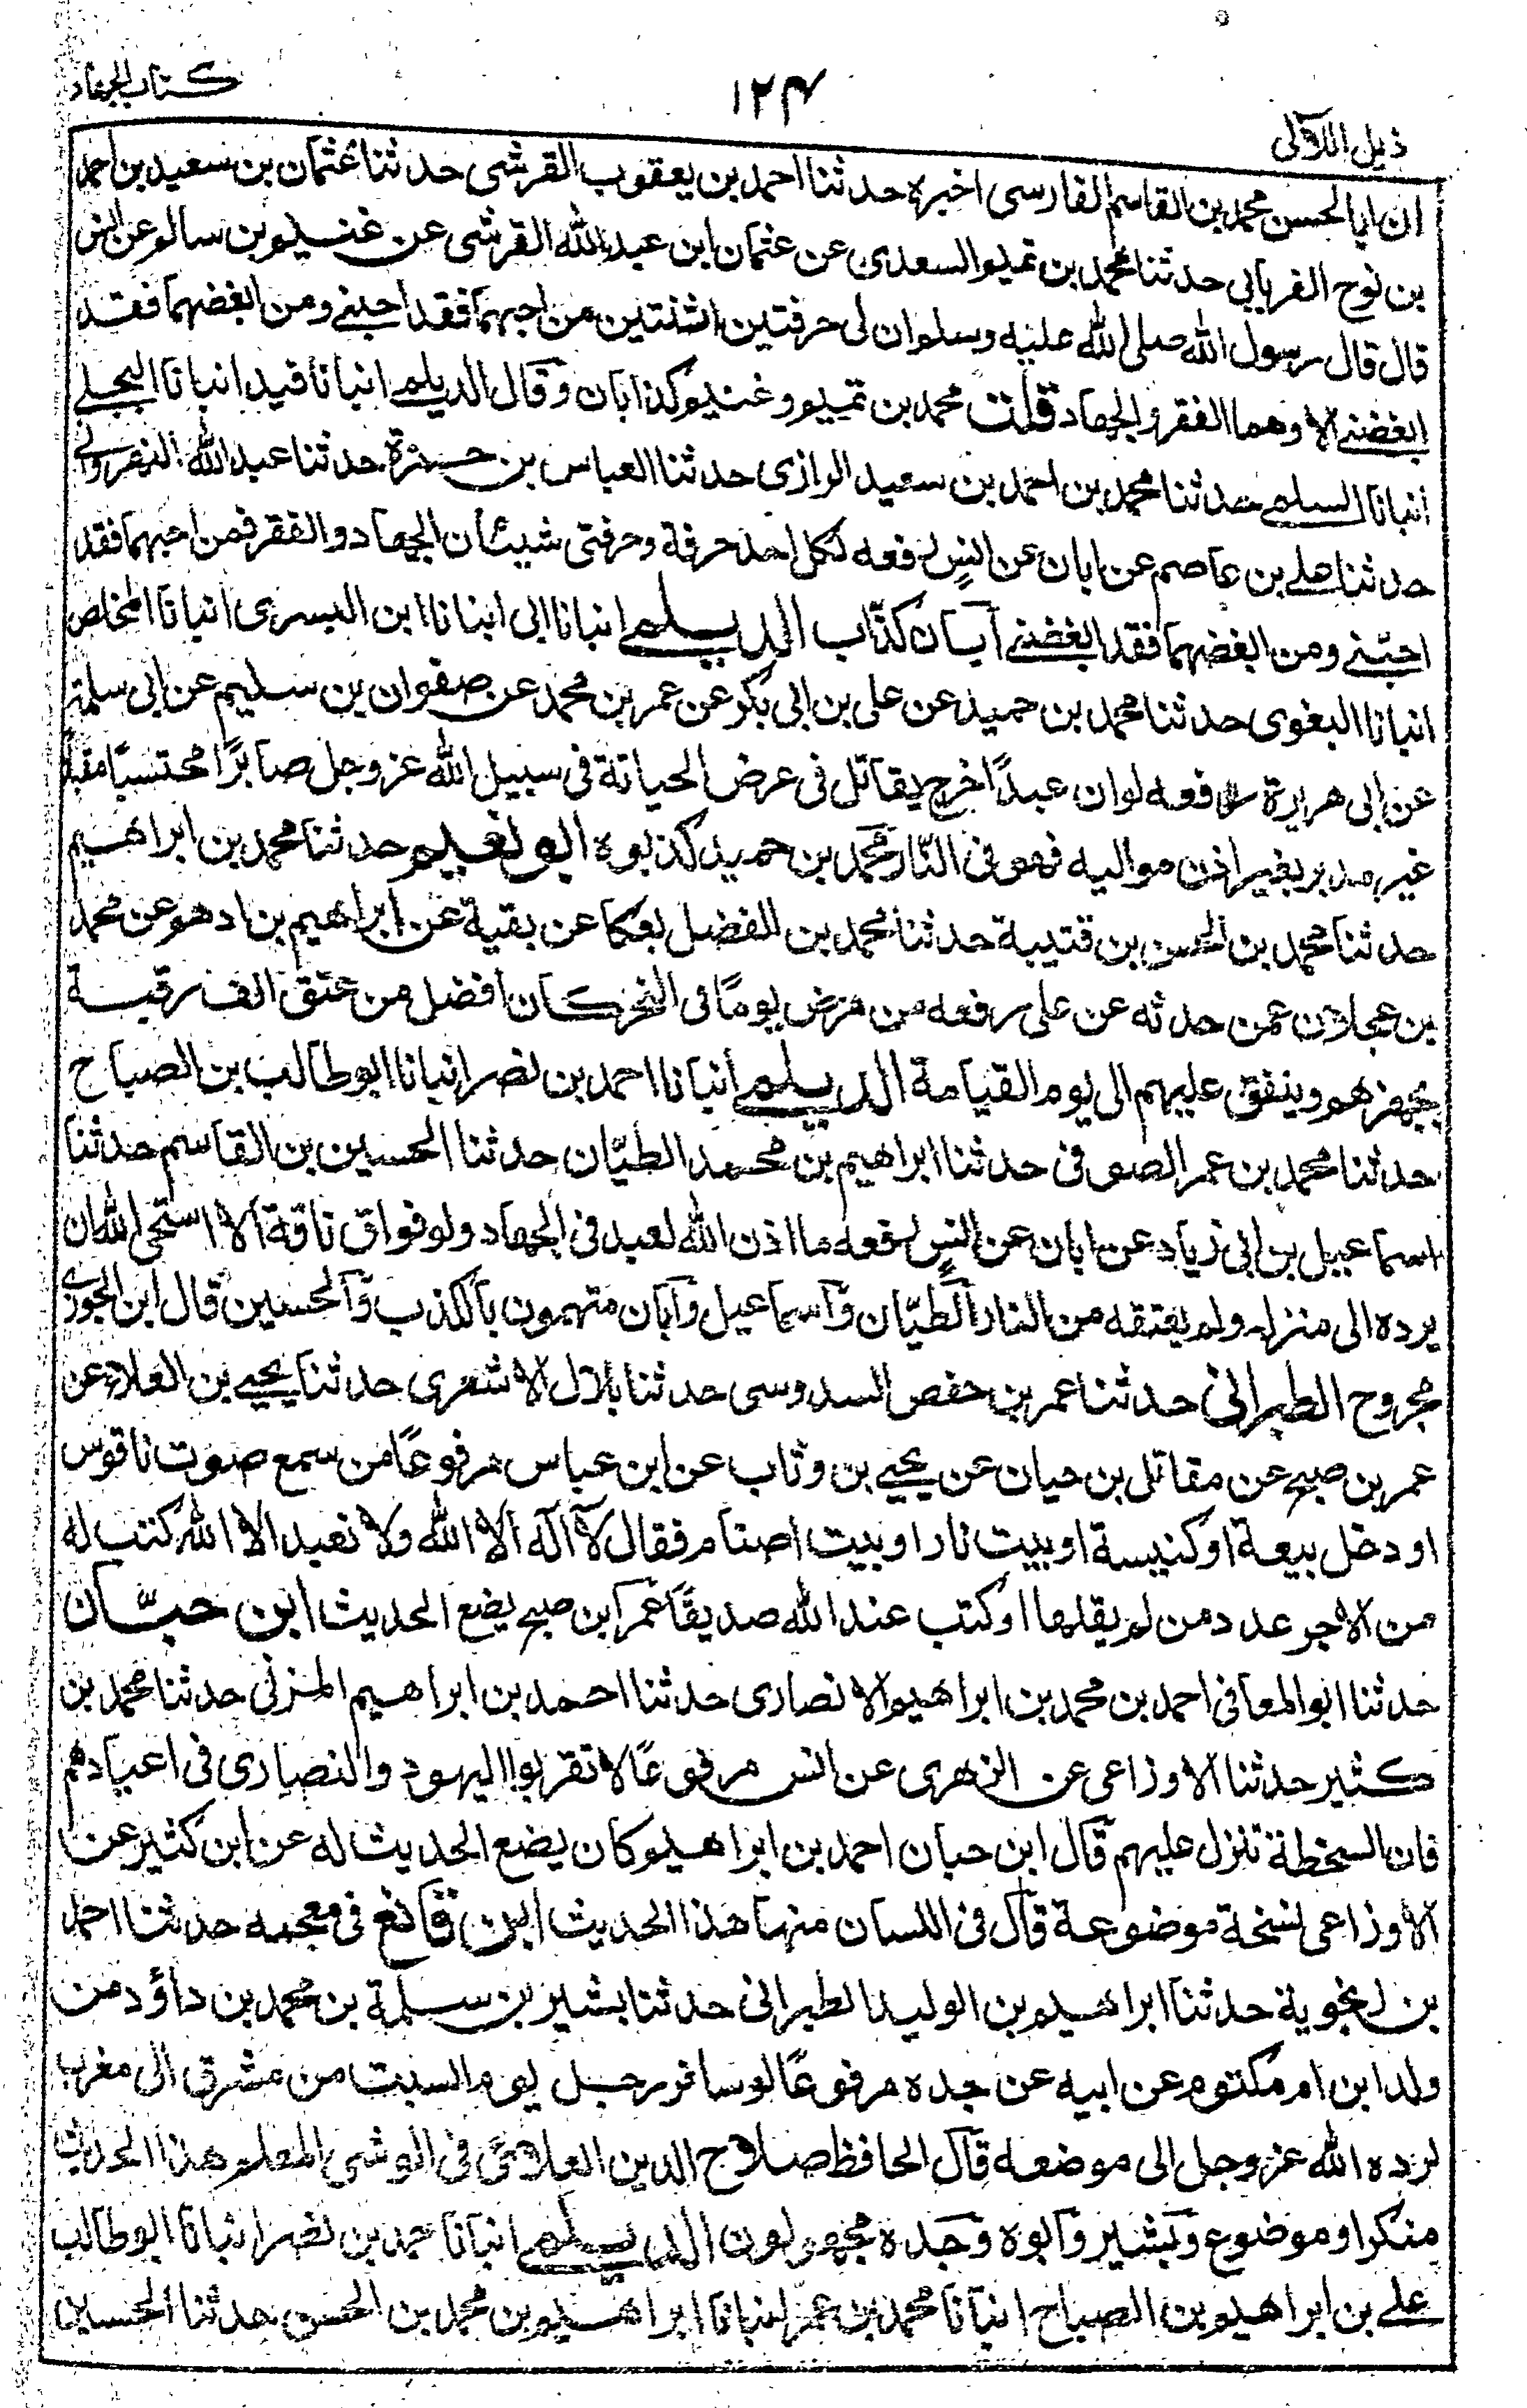 كتاب الجهاد
١٢٤
ذيل اللآلى
ان ابا الحسن محمد بن القاسم الفارسى اخبره حدثنا احمد بن يعقوب القرشى حدثنا عثمان بن سعيد بن احمد
بن نوح الفريابي حدثنا محمد بن تميم السعدى عن عثمان ابن عبد الله القرشى عن غنيم بن سالم عن انس
قال قال رسول الله صلى الله عليه وسلم ان لى حرفتين اثنتين من احبهما فقد احبنے ومن ابغضهما فقد
ابغضنے الا وهما الفقر والجهاد قلت محمد بن تميم وغنيم كذابان وقال الديلمے انبانا فيد انبانا البجلے
انبانا السلمے حدثنا محمد بن احمد بن سعيد الرازى حدثنا العباس بن حمزة حدثنا عبد الله
حدثنا علے بن عاصم عن ابان عن انس رفعه لكل احد حرفة وحرفتى شيئان الجهاد والفقر فمن احبهما فقد
احبّنے ومن ابغضهما فقد ابغضنے آبان كذّاب الديلمے انبانا ابى انبانا ابن البسرى انبانا المخلص
انبانا البغوى حدثنا محمد بن حميد عن على بن ابى بكر عن عمر بن محمد عن صفوان بن سليم عن ابى سلمة
عن ابى هريرة رفعه لو ان عبدًا خرج يقاتل فى عرض الحياتة فى سبيل الله عز وجل صابرًا محتسبًا مقبلا
غير مدبر بغير اذن مواليه فهو فى النّار محمد بن حميد كذبوه ابو نعيم حدثنا محمد بن ابراهيم
حدثنا محمد بن الحسن بن قتيبة حدثنا محمد بن الفضل بعكا عن بقية عن ابراهيم بن ادهم عن محمد
بن عجلان عمن حدثه عن على رفعه من مرض يومًا فى البحر كان افضل من عتق الف رقبة
يجهزهم وينفق عليهم الى يوم القيامة الديلمے انبانا احمد بن نصر انبانا ابو طالب بن الصباح
حدثنا محمد بن عمر الصوفى حدثنا ابراهيم بن محمد الطيّان حدثنا الحسين بن القاسم حدثنا
اسماعيل بن ابى زياد عن ابان عن انس رفعه ما اذن الله لعبد فى الجهاد ولو فواق ناقة الا استحى الله ان
يرده الى منزله ولم يعتقه من النار الطيّان واسماعيل وآبان متهمون بالكذب والحسين قال ابن الجوزى
مجروح الطبرانى حدثنا عمر بن حفص السدوسى حدثنا بلال الاشعرى حدثنا يحيے بن العلاء عن
عمر بن صبح عن مقاتل بن حيان عن يحيے بن وثاب عن ابن عباس مرفوعًا من سمع صوت ناقوس
او دخل بيعة او كنيسة او بيت نار او بيت اصنام فقال لآ اله الا الله ولا نعبد الا الله كتب له
من الاجر عدد من لم يقلها او كتب عند الله صديقًا عمر ابن صبح يضع الحديث ابن حبّان
حدثنا ابو المعافى احمد بن محمد بن ابراهيم الانصارى حدثنا احمد بن ابراهيم المزنى حدثنا محمد بن
كثير حدثنا الاوزاعى عن الزهرى عن انس مرفوعًا لا تقربوا اليهود والنصارى فى اعيادهم
فان السخطة تنزل عليهم قال ابن حبان احمد بن ابراهيم كان يضع الحديث له عن ابن كثير عن
الاوزاعى نسخة موضوعة قال فى اللسان منها هذا الحديث ابن قانع فى معجمه حدثنا احمد
بن زنجوية حدثنا ابراهيم بن الوليد الطبرانى حدثنا بشير بن سلمة بن محمد بن داؤد من
ولد ابن ام مكتوم عن ابيه عن جده مرفوعًا لو سافر رجل يوم السبت من مشرق الى مغرب
لرده الله عز وجل الى موضعه قال الحافظ صلاح الدين العلائى فى الوشى المعلم هذا الحديث
منكر او موضوع وبشير وابوه وجده مجهولون الديلمے انبانا حمد بن نصر انبانا ابو طالب
علے بن ابراهيم بن الصباح انبانا محمد بن عمر انبانا ابراهيم بن محمد بن الحسن حدثنا الحسين